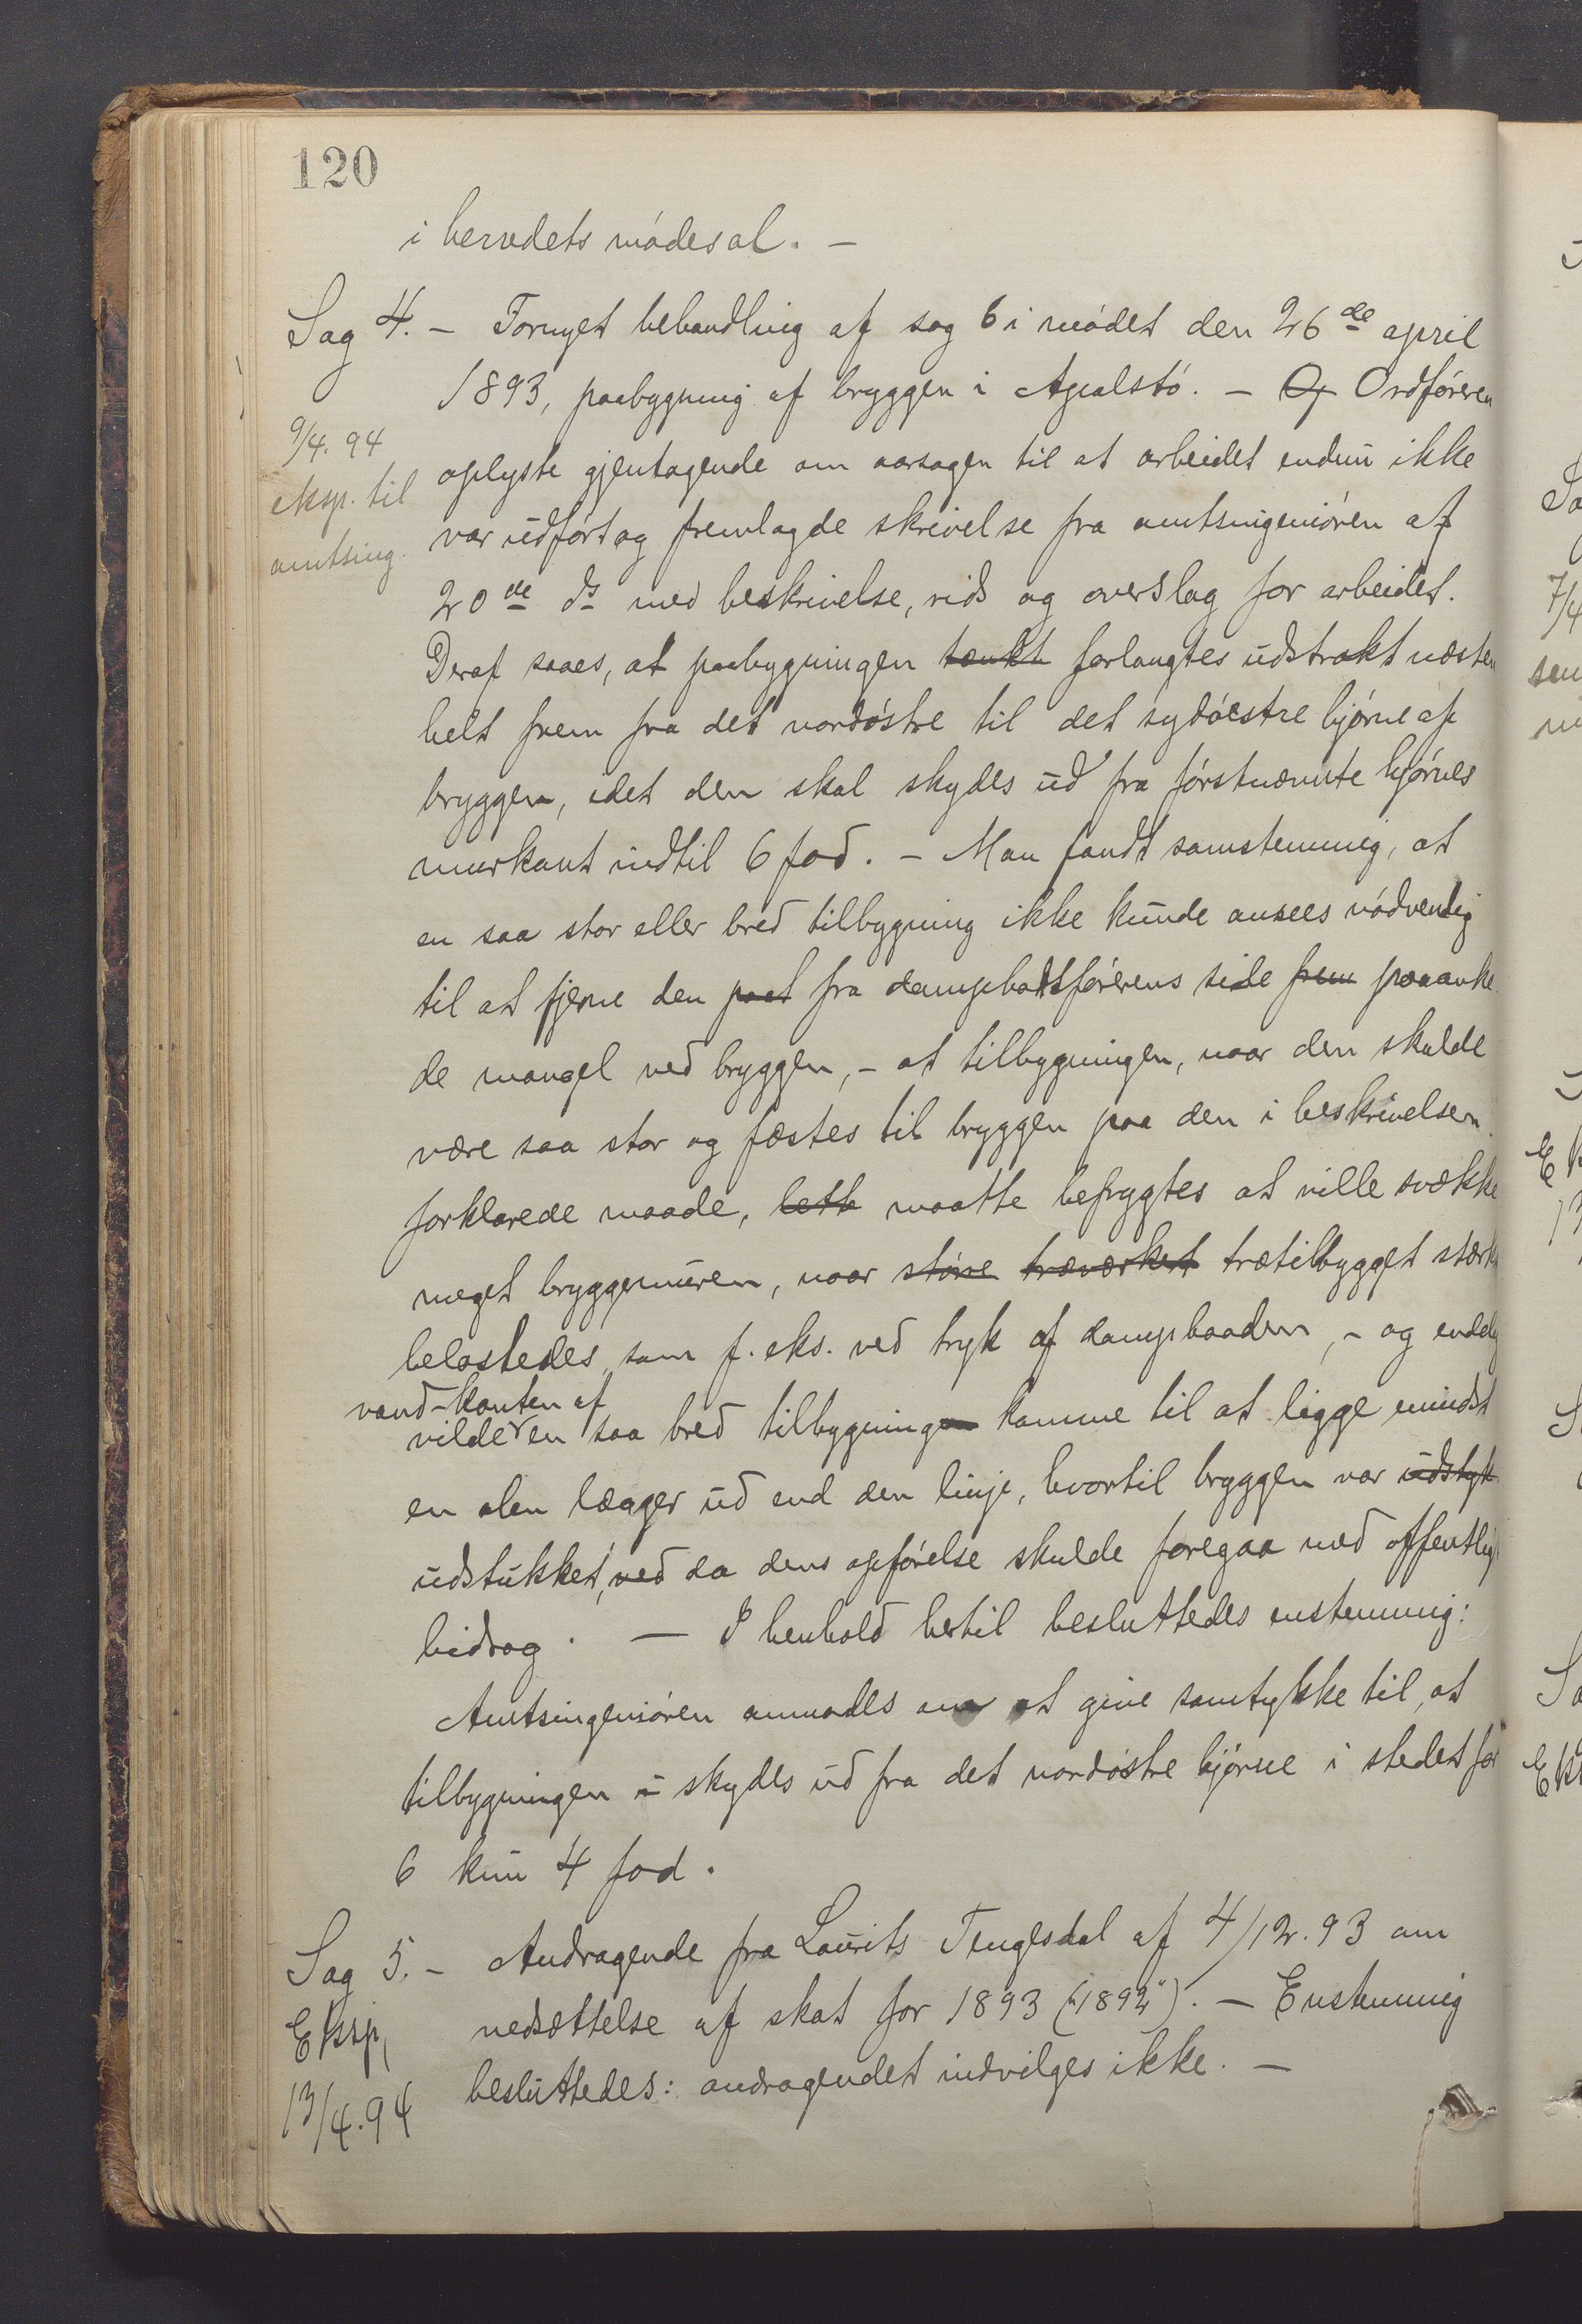 120
i herredets mödesal. –
Sag 4. – Fornyet behandling af sag 6 i mödet den 26de april
1893, paabygning af bryggen i Apalstö. – Og Ordföreren
9/4. 94
oplyste gjentagende om aarsagen til at arbeidet endnu ikke
eksp. til
var udfört og fremlagde skrivelse fra amtsingeniören af
amtsing.
20de ds med beskrivelse, rids og overslag for arbeidet.
Deraf saaes, at paabygningen tænkt forlangtes udstrakt næsten
helt frem fra det nordöstre til det sydöestre hjörne af
bryggen, idet den skal skydes ud fra förstnævnte hjörnes
murkant indtil 6 fod. – Man fandt samstemmig, at
en saa stor eller bred tilbygning ikke kunde ansees nödvendig
til at fjerne den paat fra dampbaadsförerens side frem paaanke-
de mangel ved bryggen, – at tilbygningen, naar den skulde
være saa stor og fæstes til bryggen paa den i beskrivelsen
forklarede maade, lett maatte befrygtes at ville svække
meget bryggemuren, naar störe træværket trætilbygget stærkt
belastedes, som f. eks. ved tryk af dampbaaden, – og endelig
vand-kanten af
vilde en saa bred tilbygningen komme til at ligge mindst
en alen længer ud end den linje, hvortil bryggen var udstykk
udstukket, ved da dens opförelse skulde foregaa med offentligt
bidrag. – I henhold hertil besluttedes enstemmig:
Amtsingeniören anmodes om at give samtykke til, at
tilbygningen u skydes ud fra det nordöstre hjörne i stedet for
6 kun 4 fod.
Sag 5. – Andragende fra Laurits Tengesdal af 4/12. 93 om
nedsættelse af skat for 1893 ("1892"). – Enstemmig
Eksp,
besluttedes: andragendet indvilges ikke. –
13/4. 94